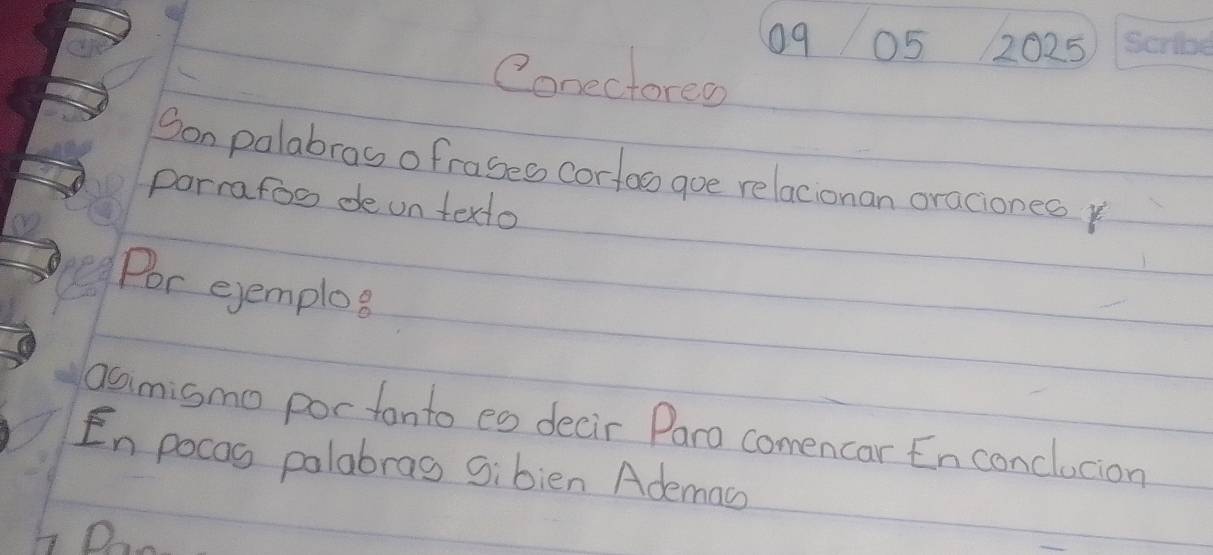 09 / 05 / 2025 Scribe
Conectores
Son palabras o frases cortas que relacionan oraciones y
parrafos de un texto
Por ejemplo:
asimismo por tanto es decir Para comencar En conclucion
En pocas palabras si bien Ademas